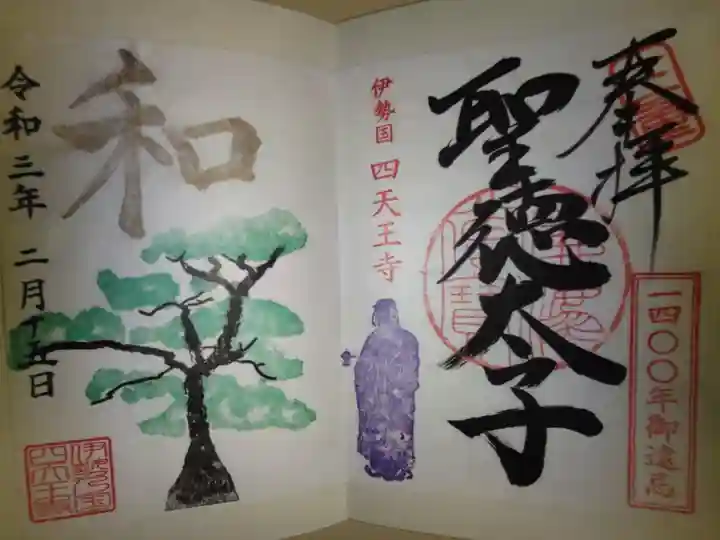 奉拝
一四〇〇年御遠忌
聖徳太子
伊勢国 四天王寺
和
令和三年 二月十五日